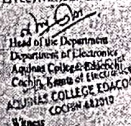 Head of the Department
Department of Electronics
Aquinas College, Edacochi
Cochin, Kerala of Electronics
AQUINAS COLLEGE EDACOCHI
COCHIN 682010
Witness